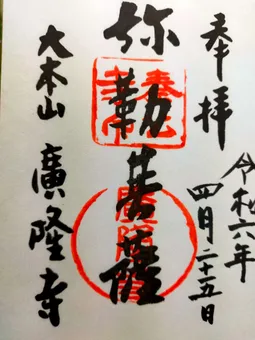 奉拝
令和六年
四月二十五日
弥勒菩薩
大本山 廣隆寺